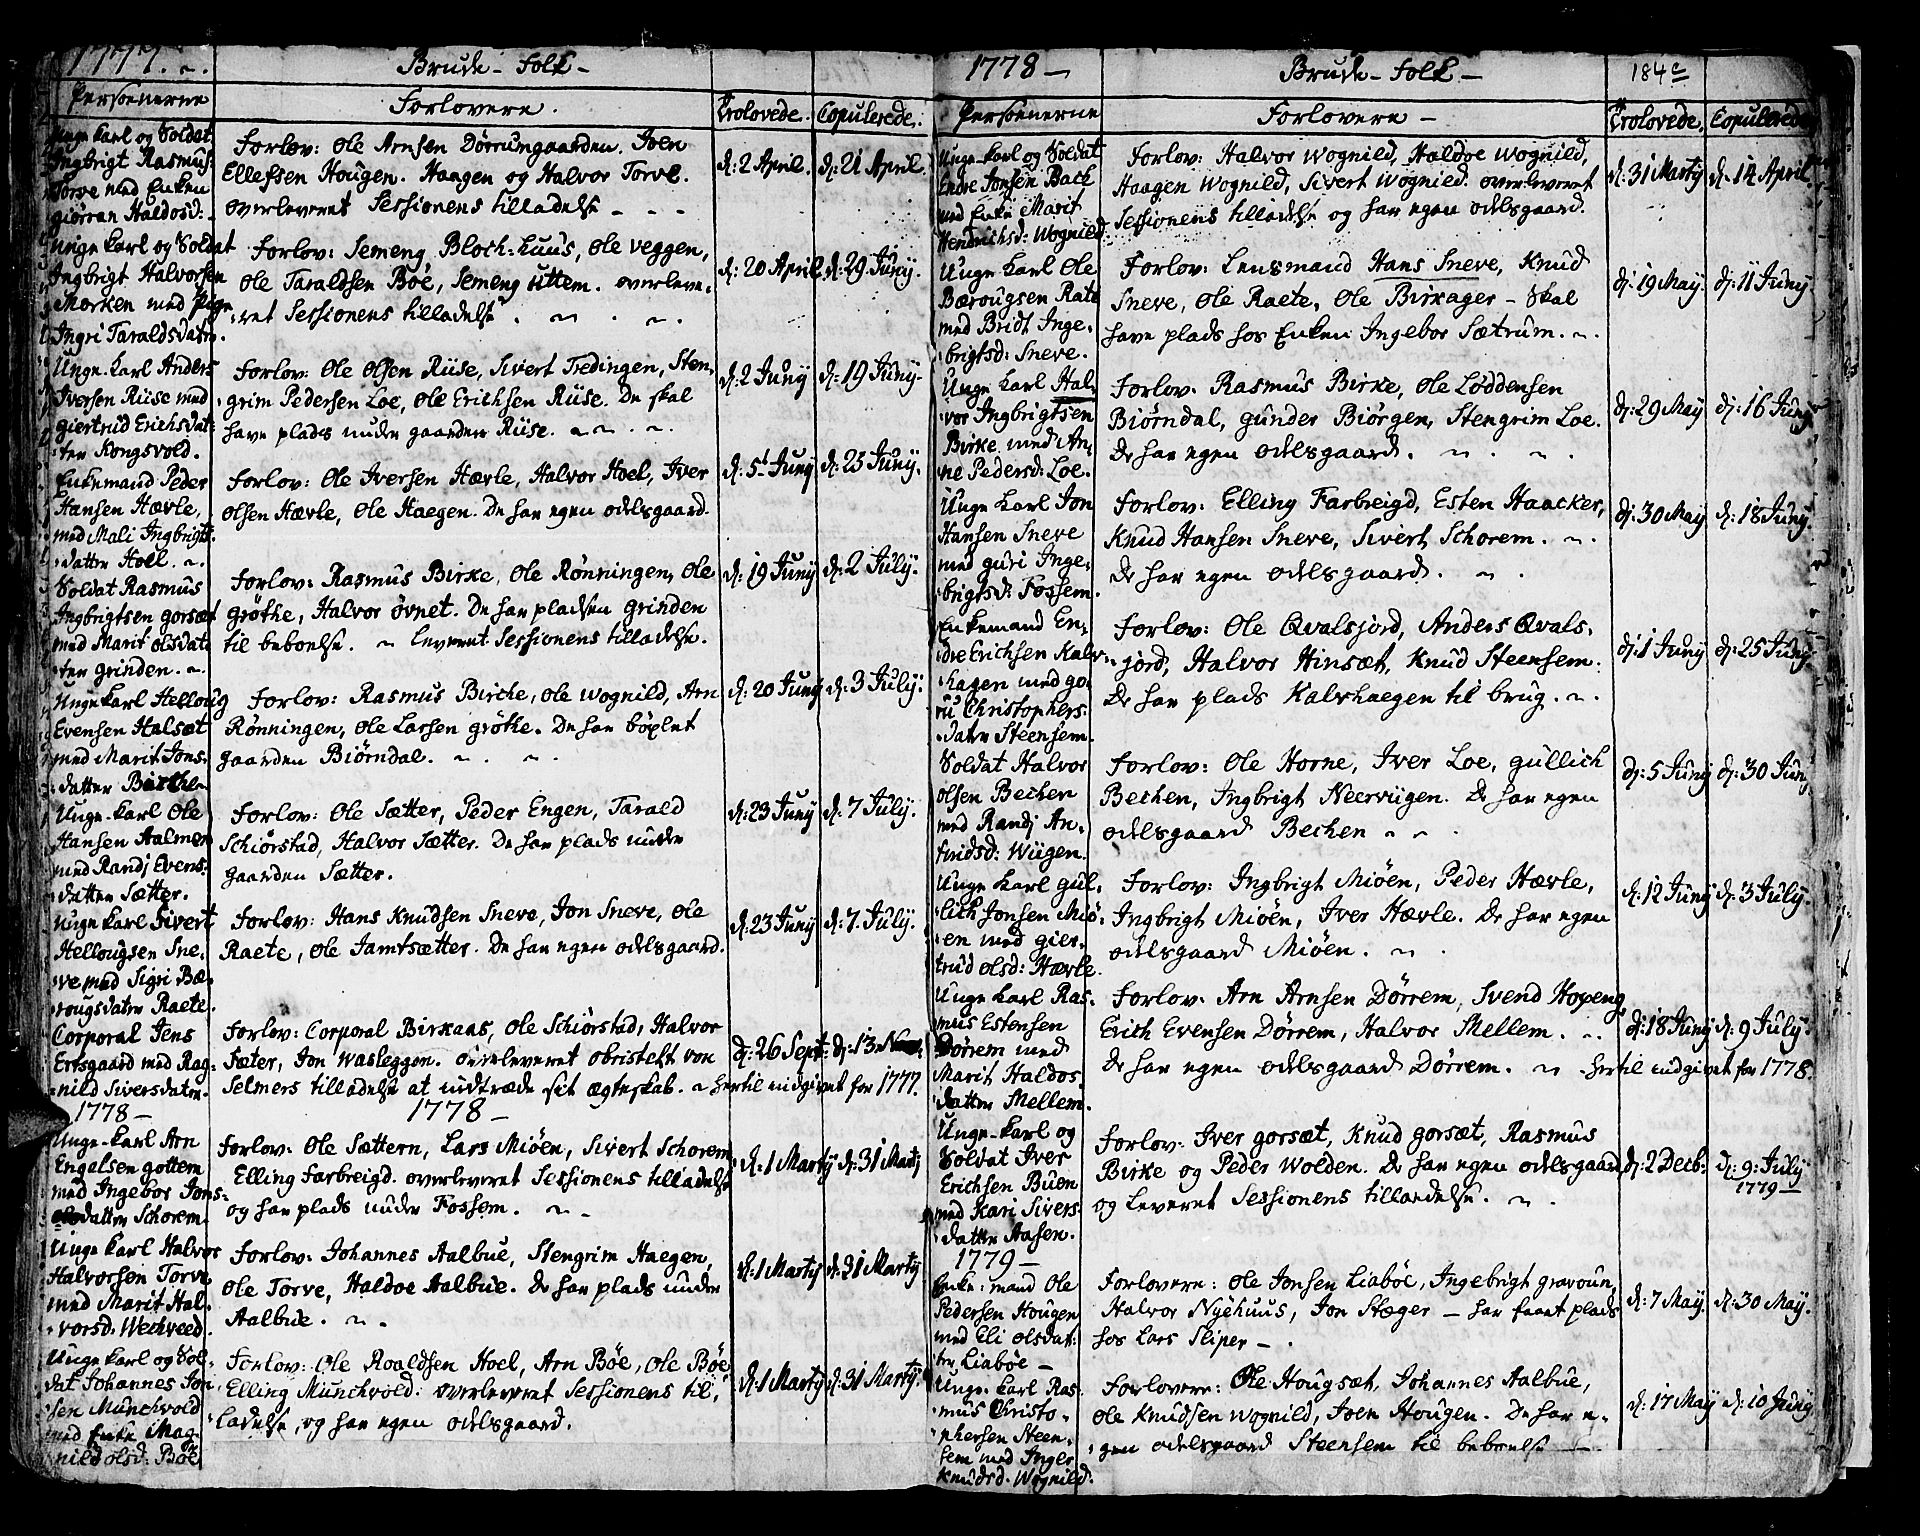 1777. ~.
Brude-Folk-
Persoenerne
Forlovere.
Trolovede.
Copulerede.
Unge karl og Soldat
Ingbrigt Rasmus:
Torve med Enken
giørran Haldosd:
Forlov: Ole Arnsen Dørrumgaarden. Joen
Ellefsen Hougen. Haagen og Halvor Torve.
overleveret Sessionens tilladelse - - -
d: 2 April.
d: 21 April.
Unge karl og Soldat
Ingbrigt Halvorsen
Morken med Pige
Ingri Taraldsdatn.
Forlov: Semeng Bloch-huus, Ole Veggen,
Ole Taraldsen Bøe, Semeng Uttem. overleve-
ret Sessionens tilladelse. ~ . ~.
d: 20 April
d: 29 Juny.
Unge-karl Anders
Iversen Riise med
giertrud Erichsdat-
ter Kongsvold.
Forlov: Ole Olsen Riise, Sivert Tredingen, Sten-
grim Pedersen Loe, Ole Erichsen Riise. De skal
have plads under gaarden Riise. ~ ~ . ~.
d: 2 Juny
d: 19 Juny.
Enkemand Peder
Hansen Hævle,
med Mali Ingbrigts-
datter Hoel. ~.
Forlov: Ole Iversen Hævle, Halvor Hoel, Iver
Olsen Hævle, Ole Haegen. De har egen odelsgaard.
d: 5t Juny
d: 25 Juny.
Soldat Rasmus
Ingbrigtsen gorsæt
med Marit Olsdat-
ter grinden. ~.
Forlov: Rasmus Birke, Ole Rønningen, Ole
grøthe, Halvor Øvnet. De har pladsen grinden
til beboelse. ~ leveret Sessionens tilladelse.
d: 19 Juny
d: 2 July.
Unge karl Helloug
Evensen Halsæt
med Marit Jons-
datter Birche
Forlov: Rasmus Birche, Ole Wognild, Arn
Rønningen, Ole Larsen grøthe. De har bøxlet
gaarden Biørndal. ~ . ~ .
d: 20 Juny
d: 3 July.
Unge-karl Ole
Hansen Aalmen
med Randj Evens-
datter Sætter.
Forlov: Ole Sætter, Peder Engen, Tarald
Schiørstad, Halvor Sætter. De har plads under
gaarden Sætter.
d: 23 Juny
d: 7 July.
Unge karl Sivert
Hellougsen Sne-
ve med Sigri Bæ-
rougsdatn Raete.
Forlov: Hans Knudsen Sneve, Jon Sneve, Ole
Raete, Ole Jamtsætter. De har egen odelsgaard.
d: 23 Juny
d: 7. July.
Corporal Jens
Ertsgaard med Rag-
nild Siversdatn.
Forlov: Corporal Birkaas, Ole Schiørstad, Halvor
Sæter, Jon Wasleggen. overleveret obristelt von
Selmers tilladelse at indtræde sit ægteskab. ~ hertil indgivet for 1777.
d: 26 Sept:
d: 13 Nov:
1778 -
1778 -
Unge-karl Arn
Engelsen gottem
med Ingebor Jons-
datter Schorem.
Forlov: Ole Sættern, Lars Miøen, Sivert Schorem
Elling Farbreigd. overleveret Sessionens tilladelse
og har plads under Fossem. ~ ~
d: 1 Marty
d: 31 Marty
Unge karl Halvor
Halvorsen Torve
med Marit Hal-
vorsd: Wechveed.
Forlov: Johannes Aalbue, Stengrim Haegen,
Ole Torve, Haldoe Aalbue. De har plads under
Aalbue. ~ .
d: 1 Marty
d: 31 Marty
Unge karl og Sol-
dat Johannes Jon
sen Munchvold
med Enke Mag-
nild Olsd: Bøe
Forlov: Ole Roaldsen Hoel, Arn Bøe, Ole Bøe
Elling Munchvold. overleveret Sessionens til-
ladelse, og har egen odelsgaard.
d: 1 Marty
d: 31 Marty.
1778 -
Brude-Folk-
184c
Persoenerne
Forlovere -
Trolovede.
Copulerede
Unge-karl og Soldat
Endre Jonsen Bach
med Enke Marit
Hendrichsd: Wognild
Forlov: Halvor Wognild, Haldoe Wognild,
Haagen Wognild, Sivert Wognild. overleveret
Sessionens tilladelse og har egen odelsgaard.
d: 31 Marty
d: 14 April.
Unge karl Ole
Bærougsen Rate
med Bridt Inge-
brigtsd: Sneve.
Forlov: Lensmand Hans Sneve, Knud
Sneve, Ole Raete, Ole Birkager - Skal
have plads hos Enken Ingebor Sætrum. ~.
d: 19 May.
d: 11 Juny
Unge karl Hal-
vor Ingbrigtsen
Birke med An-
ne Pedersd: Loe.
Forlov: Rasmus Birke, Ole Løddensen
Biørndal, gunder Biørgen, Stengrim Loe.
De har egen odelsgaard. ~ . ~ . ~
d: 29 May
d: 16 Juny
Unge karl Jon
Hansen Sneve
med guri Inge-
brigtsd: Fossem.
Forlov: Elling Farbreigd, Esten Haacker,
Knud Hansen Sneve, Sivert Schorem. ~.
De har egen odelsgaard. ~ .
d: 30 May
d: 18 Juny
Enkemand En-
dre Erichsen Kalv-
hagen med go-
ru Christophers-
datn Steensem.
Forlov: Ole Qvalsjord, Anders Qvals-
jord, Halvor Hinsæt, Knud Steensem.
De har plads Kalvhaegen til brug. ~.
d: 1 Juny
d: 25 Juny.
Soldat Halvor
Olsen Bechen
med Randj An-
findsd: Wiigen.
Forlov: Ole Horne, Iver Loe, gullich
Bechen, Ingbrigt Neerviigen. De har egen
odelsgaard Bechen ~ ~ .
d: 5 Juny
d: 30 Juny
Unge karl gul-
lich Jonsen Miø-
en med gier-
trud Olsd: Hævle.
Forlov: Ingbrigt Miøen, Peder Hævle,
Ingbrigt Miøen, Iver Hævle. De har egen
odelsgaard Miøen. ~ .
d: 12 Juny
d: 3 July.
Unge karl Ras-
mus Estensen
Dørrem med
Marit Haldos-
datter Mellem.
Forlov: Arn Arnsen Dørrem, Svend Hopeng,
Erich Evensen Dørrem, Halvor Mellem. ~.
De har egen odelsgaard Dørrem. ~ hertil indgivet for 1778.
d: 18 Juny
d: 9 July.
Unge-karl og
Soldat Iver
Erichsen Buen
med Kari Sivers-
datter Aasen.
Forlov: Iver gorsæt, Knud gorsæt, Rasmus
Birke og Peder Wolden. De har egen odelsgaard,
og leveret Sessionens tilladelse. ~ .
d: 2 Decb:
d: 9: July
1779 -
1779 -
Enke-mand Ole
Pedersen Hougen
med Eli Olsdat-
ter Liabøe -
Forlovere: Ole Jonsen Liabøe, Ingebrigt gravoun,
Halvor Nyehuus, Jon Stæger - har faaet plads
hos Lars Sliper - .
d: 7 May.
d: 30 May.
Unge-karl Ras-
mus Christo-
phersen Steen-
sem med Inger
Knudsd. Wognild.
Forlovere: Ole Hougsæt, Johannes Aalbue,
Ole Knudsen Wognild, Joen Hougen. De har e-
gen odelsgaard Steensem til beboelse -
d: 17 May
d: 10 Juny